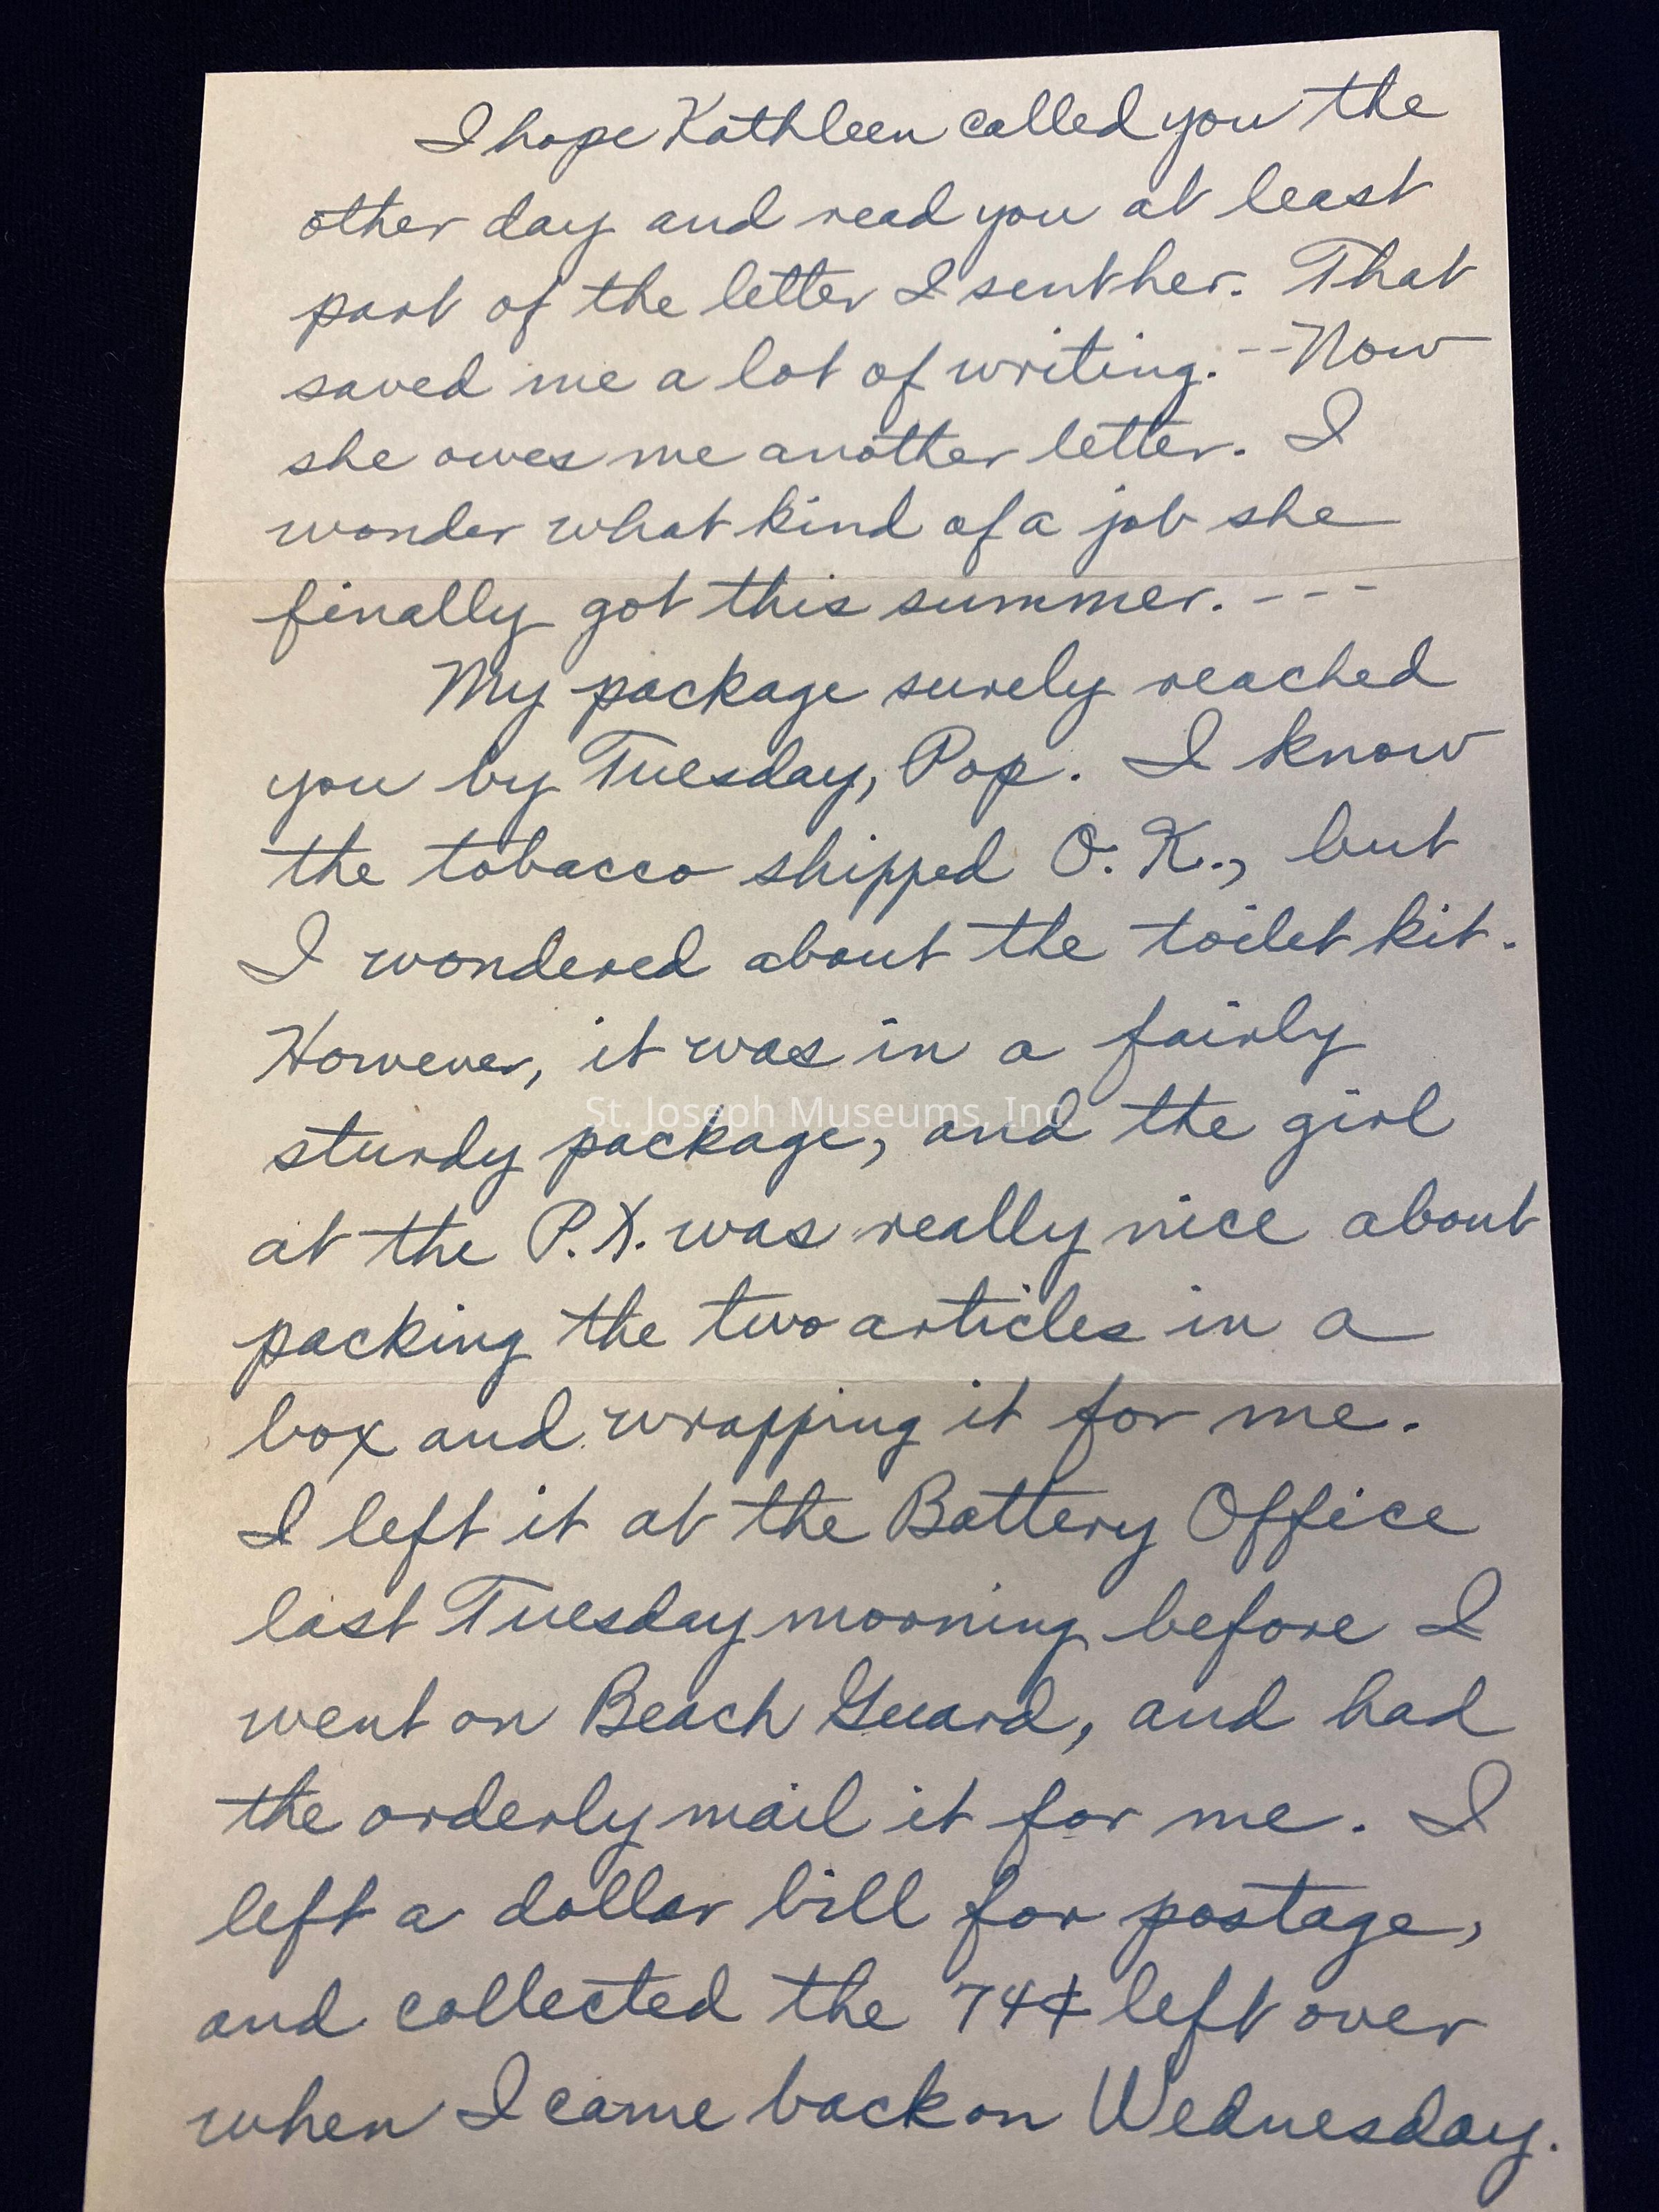 I hope Kathleen called you the
other day and read you at least
part of the letter I sent her. That
saved me a lot of writing. -- Now
she owes me another letter. I
wonder what kind of a job she
finally got this summer. ---
My package surely reached
you by Tuesday, Pop. I know
the tobacco shipped O.K., but
I wondered about the toilet kit.
However, it was in a fairly
St. Joseph Museums, Inc.
sturdy package, and the girl
at the P.X. was really nice about
packing the two articles in a
box and wrapping it for me.
I left it at the Battery Office
last Tuesday morning before I
went on Beach Guard, and had
the orderly mail it for me. I
left a dollar bill for postage,
and collected the 74¢ left over
when I came back on Wednesday.